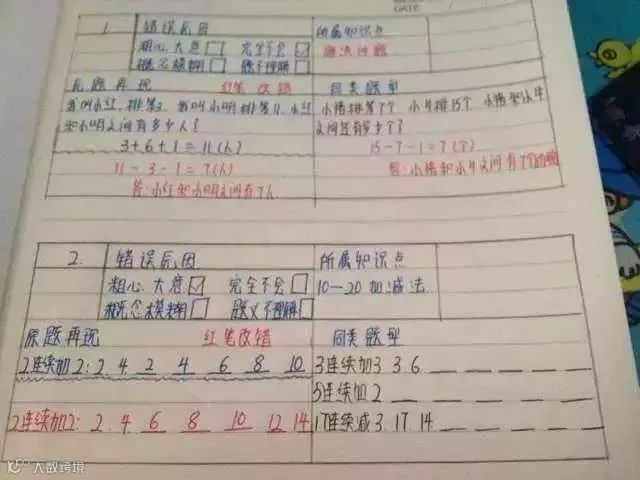 DATE
1 错误原因 所属知识点
粗心大意 完全不会 减法问题
概念模糊 题不理解
原题再现 红笔改错 同类题型
我叫小红，排第3，我叫小明排第11，小红 小猪排第7个 小牛排15个 小猪和小牛
和小明之间有多少人？ 之间有多少个？
3+6+1=11(人) 15-7-1=7(个)
11-3-1=7(人) 答：小猪和小牛之间有7个动物
答：小红和小明之间有7人
2. 错误原因 所属知识点
粗心大意 完全不会 10-20加减法
概念模糊 题义不理解
原题再现 红笔改错 同类题型
2连续加2：2 4 2 4 6 8 10 3连续加3 3.6
5连续加2
2连续加2：2.4 6 8 10 12 14 17连续减3.17.14
大数跨境